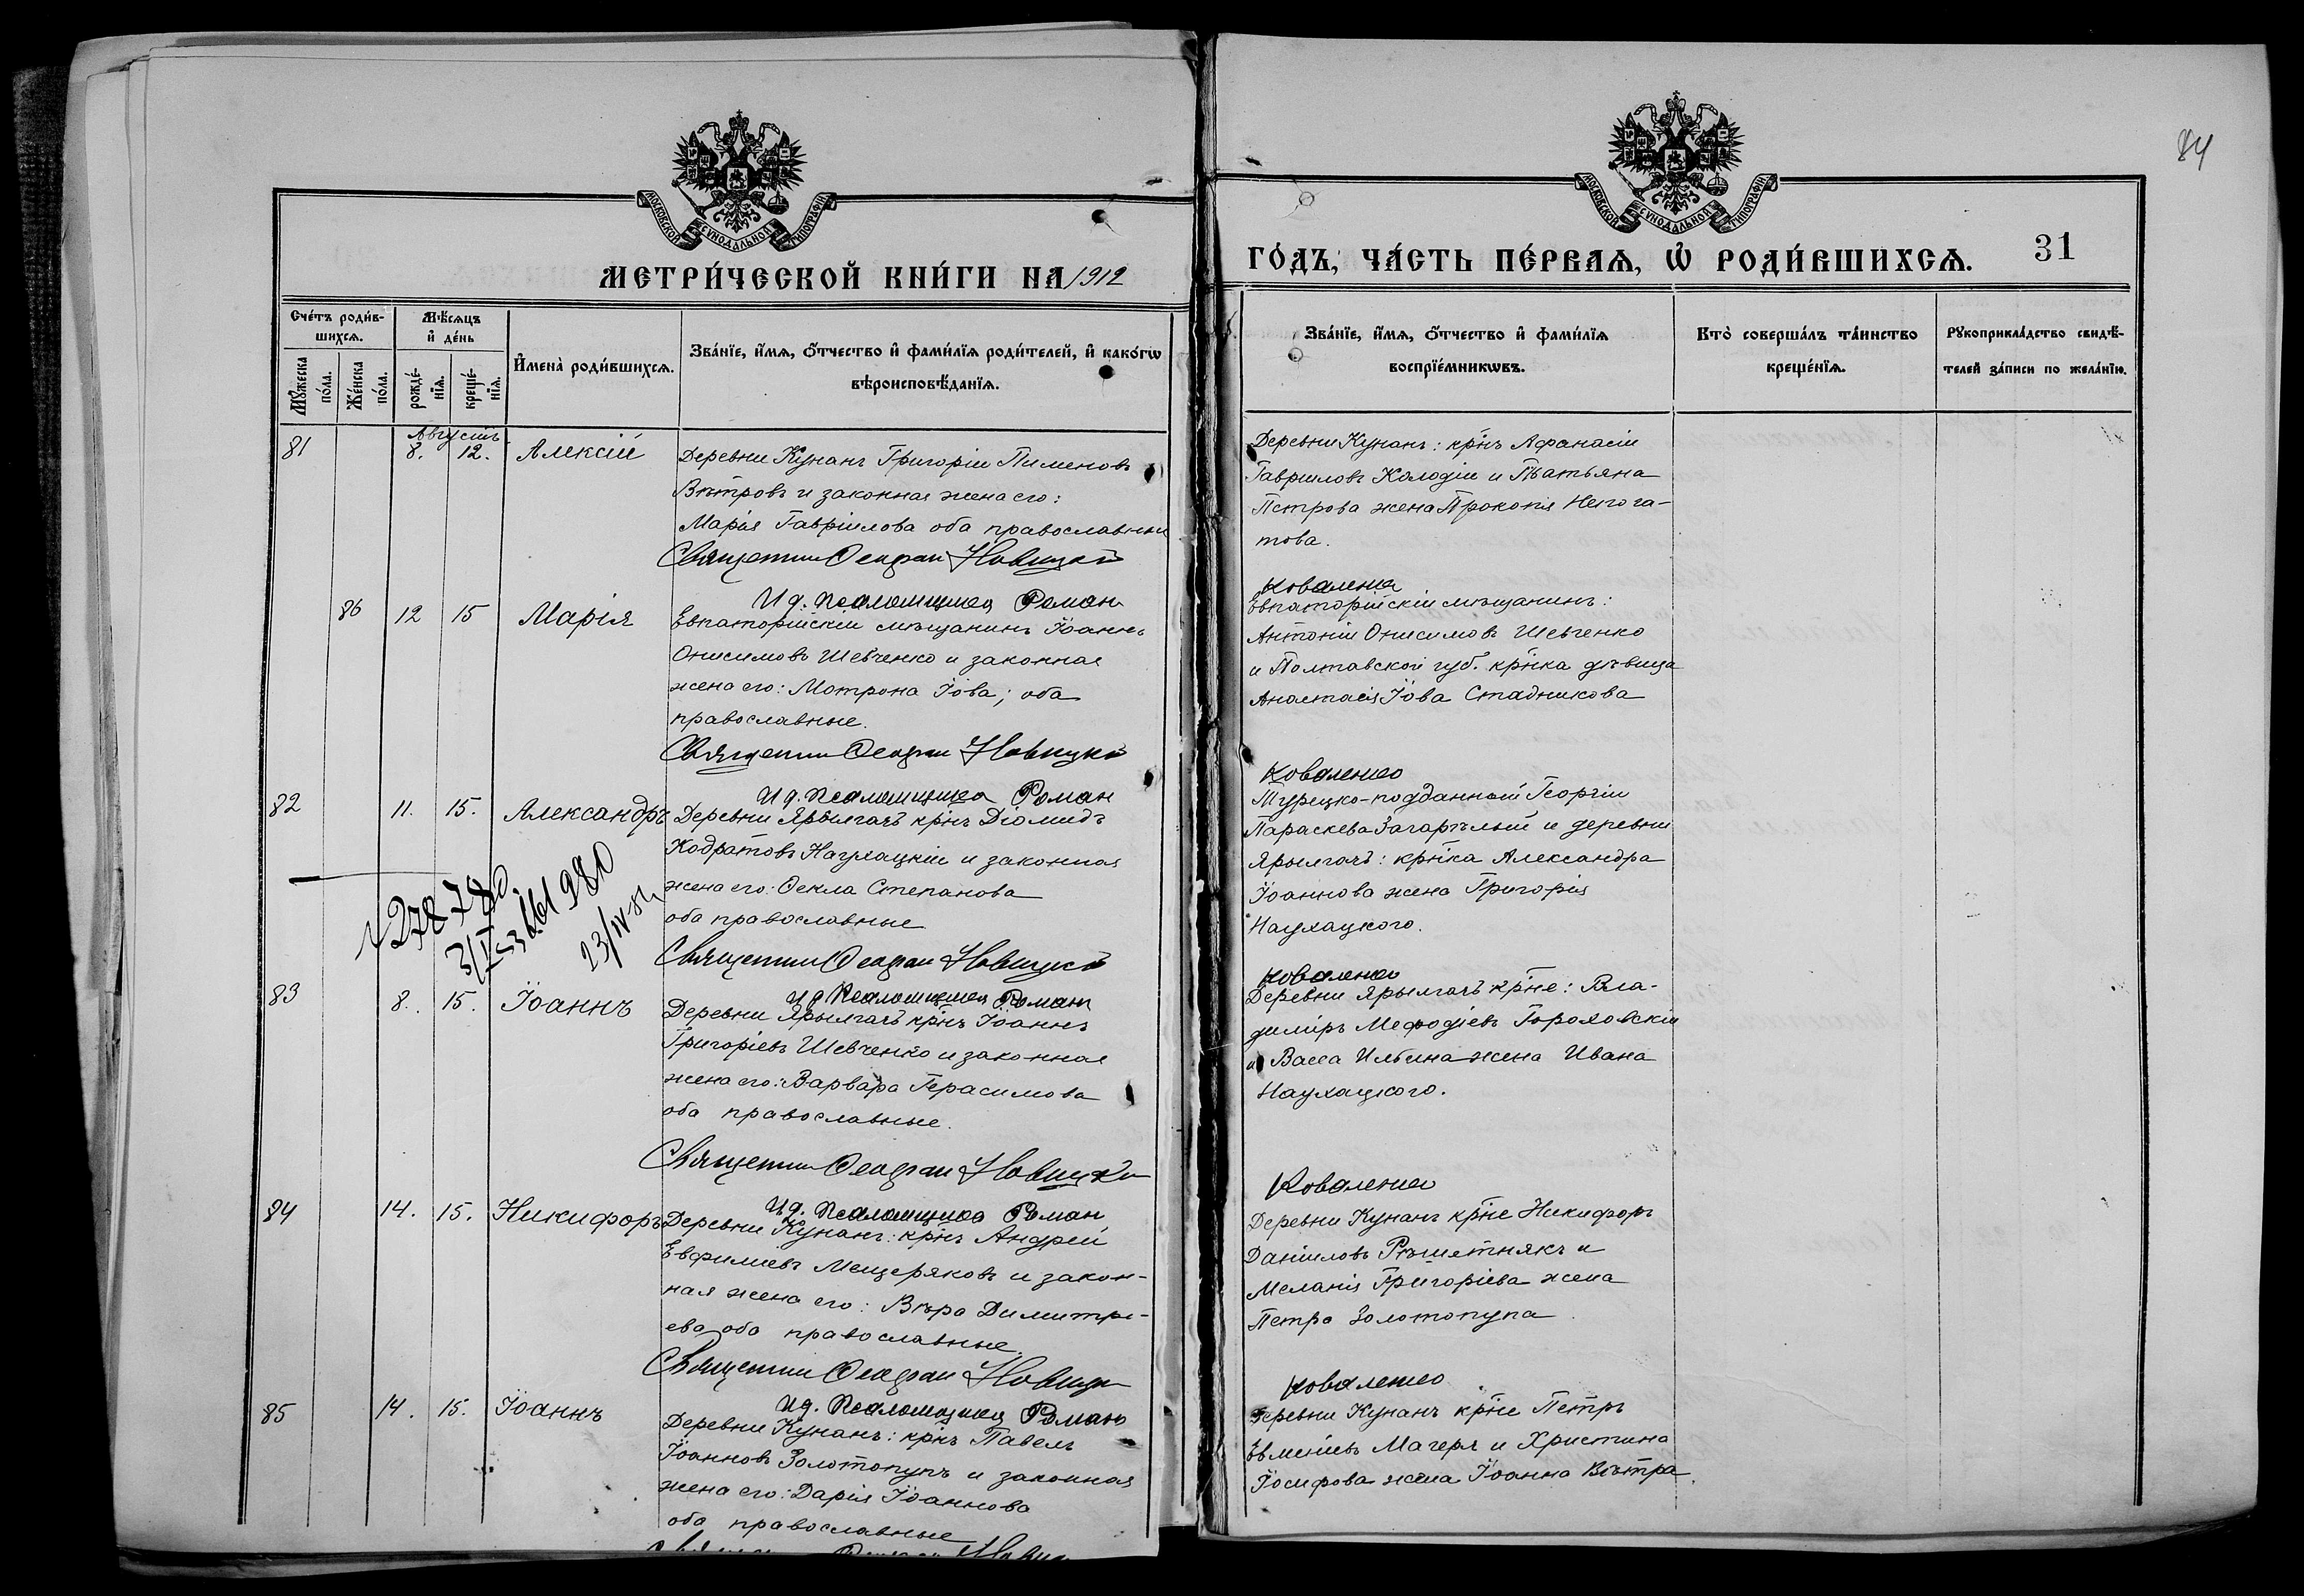 84
МОСКОВСКОЙ СѴНОДАЛЬНОЙ ТИПОГРАФІИ
МЕТРИ́ЧЕСКОЙ КНИ́ГИ НА 1912
Сче́тъ роди́в-
шихсѧ.
Мѣ́сѧцъ
и҆ де́нь
Мꙋ́жеска
по́ла.
Же́нска
по́ла.
рожде́-
нїѧ.
креще́-
нїѧ.
И҆мена̀ роди́вшихсѧ.
Зва́нїе, и҆́мѧ, ѻ҆́тчество и҆ фами́лїѧ роди́телей, и҆ како́гѡ
вѣроисповѣ́данїѧ.
Августъ
81
8.
12.
Алексій
Деревни Кунанъ Григорій Пименовъ
Вѣтровъ и законная жена его:
Марія Гавріилова оба православные
Священникъ Ѳеофан Новицкій
И д. псаломщика Роман
86
12
15
Марія
Евпаторійскій мѣщанинъ Іоаннъ
Онисимовъ Шевченко и законная
жена его: Мотрона Іова; оба
православные.
Священник Ѳеофан Новицкій
И д. псаломщика Роман
82
11.
15.
Александръ
Деревни Ярылгачъ крнъ Діомидъ
Кодратовъ Наухацкій и законная
жена его: Ѳекла Степанова
оба православные
278780
23/IV
Священник Ѳеофан Новицкій
И д Псаломщика Роман
83
8.
15.
Іоаннъ
Деревни Ярылгачъ крнъ Іоаннъ
Григоріевъ Шевченко и законная
жена его: Варвара Герасимова
оба православные.
Священник Ѳеофан Новицкій
И д. Псаломщика Роман
84
14.
15.
Никифоръ
Деревни Кунанъ: крнъ Андрей
Евфиміевъ Мещеряковъ и закон-
ная жена его: Вѣра Димитрі-
ева оба православные.
Священник Ѳеофан Новицкій
И д. Псаломщика Роман
85
14.
15.
Іоаннъ
Деревни Кунанъ: крнъ Павелъ
Іоанновъ Золотопупъ и законная
жена его: Дарія Іоаннова
оба православные
МОСКОВСКОЙ СѴНОДАЛЬНОЙ ТИПОГРАФІИ
ГО́ДЪ, ЧА́СТЬ ПЕ́РВАѦ, Ѡ҆ РОДИ́ВШИХСѦ. 31
Зва́нїе, и҆́мѧ, ѻ҆́тчество и҆ фами́лїѧ
воспрїе́мникѡвъ.
Кто̀ соверша́лъ та́инство
креще́нїѧ.
Рꙋкоприкла́дство свидѣ́-
телей за́писи по жела́нїю.
Деревни Кунанъ: крнъ Афанасій
Гавриловъ Колодій и Татьяна
Петрова жена Прокопія Непога-
това.
Коваленко
Евпаторійскій мѣщанинъ:
Антоній Онисимовъ Шевченко
и Полтавской губ. крнка дѣвица
Анастасія Іова Стадникова
Коваленко
Турецко-подданный Георгій
Параскева Загарѣлый и деревни
Ярылгачъ: крнка Александра
Іоаннова жена Григорія
Наухацкого.
Коваленко
Деревни Ярылгачъ крне: Вла-
димиръ Мефодіевъ Гороховскій
и Васса Ильина жена Ивана
Наухацкого.
Коваленко
Деревни Кунанъ крне Никифоръ
Даніиловъ Рѣшетнякъ и
Меланія Григоріева жена
Петра Золотопупа
Коваленко
Деревни Кунанъ крне Петръ
Евменіевъ Магеря и Христина
Іосифова жена Іоанна Вѣтра.